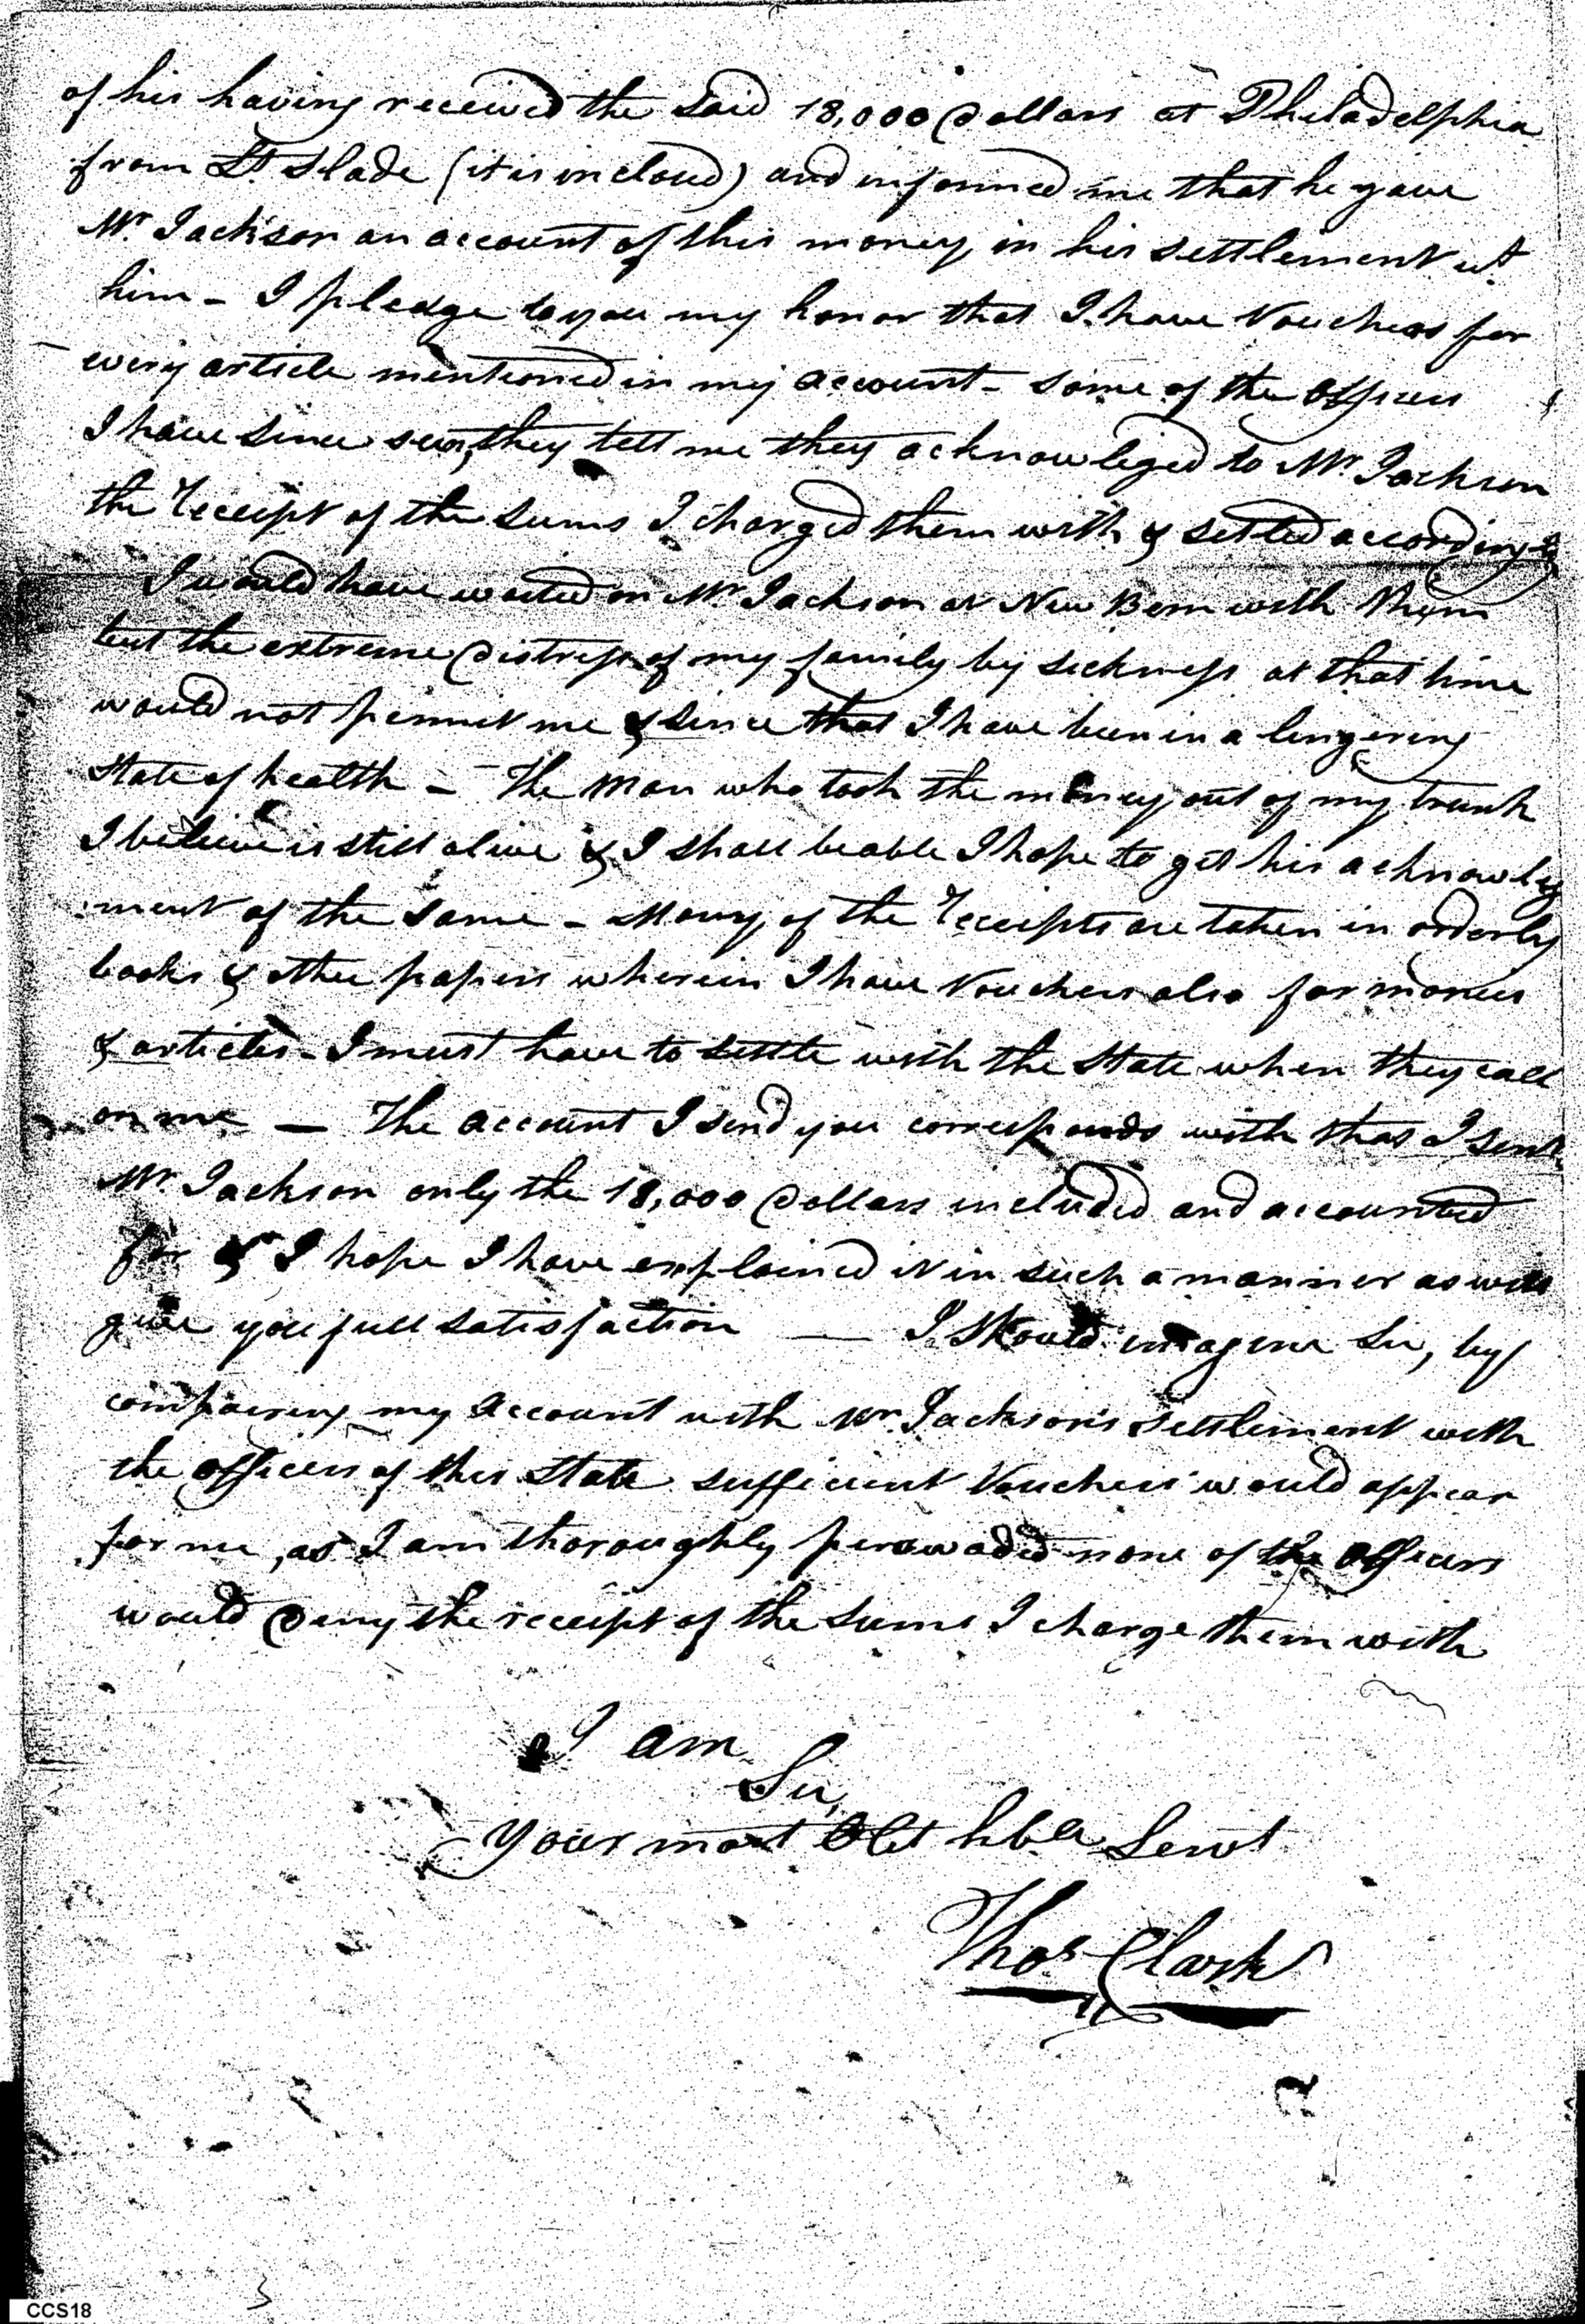 of his having received the said 18,000 Dollars at Philadelphia
from Lt. Slade (it is inclosd) and informed me that he gave
Mr. Jackson an account of this money in his settlement wt.
him - I pledge to you my honor that I have Vouchers for
every article mentioned in my account - some of the officers
I have since seen, they tell me they acknowliged to Mr. Jackson
the receipt of the sums I charged them with & settled accordingly
I would have waited on Mr. Jackson at New Bern with them
but the extreme distress of my family by sickness at that time
would not permit me & since that I have been in a lingering
State of health - The man who took the money out of my trunk
I believe is still alive & I shall be able I hope to get his acknowleg
:ment of the same - Many of the receipts are taken in orderly
books & other papers wherein I have Vouchers also for monies
& articles - I must have to settle with the State when they call
on me - The account I send you corresponds with that I sent
Mr. Jackson only the 18,000 Dollars included and accounted
for & I hope I have explained it in such a manner as will
give you full satisfaction — I should imagine Sir, by
compairing my account with Mr. Jackson's settlement with
the officers of this State sufficient Vouchers would appear
for me, as I am thoroughly perswaded none of the officers
would deny the receipt of the sums I charge them with
I am
Sir,
Your most Obt hble Servt
Thos. Clark
CCS18